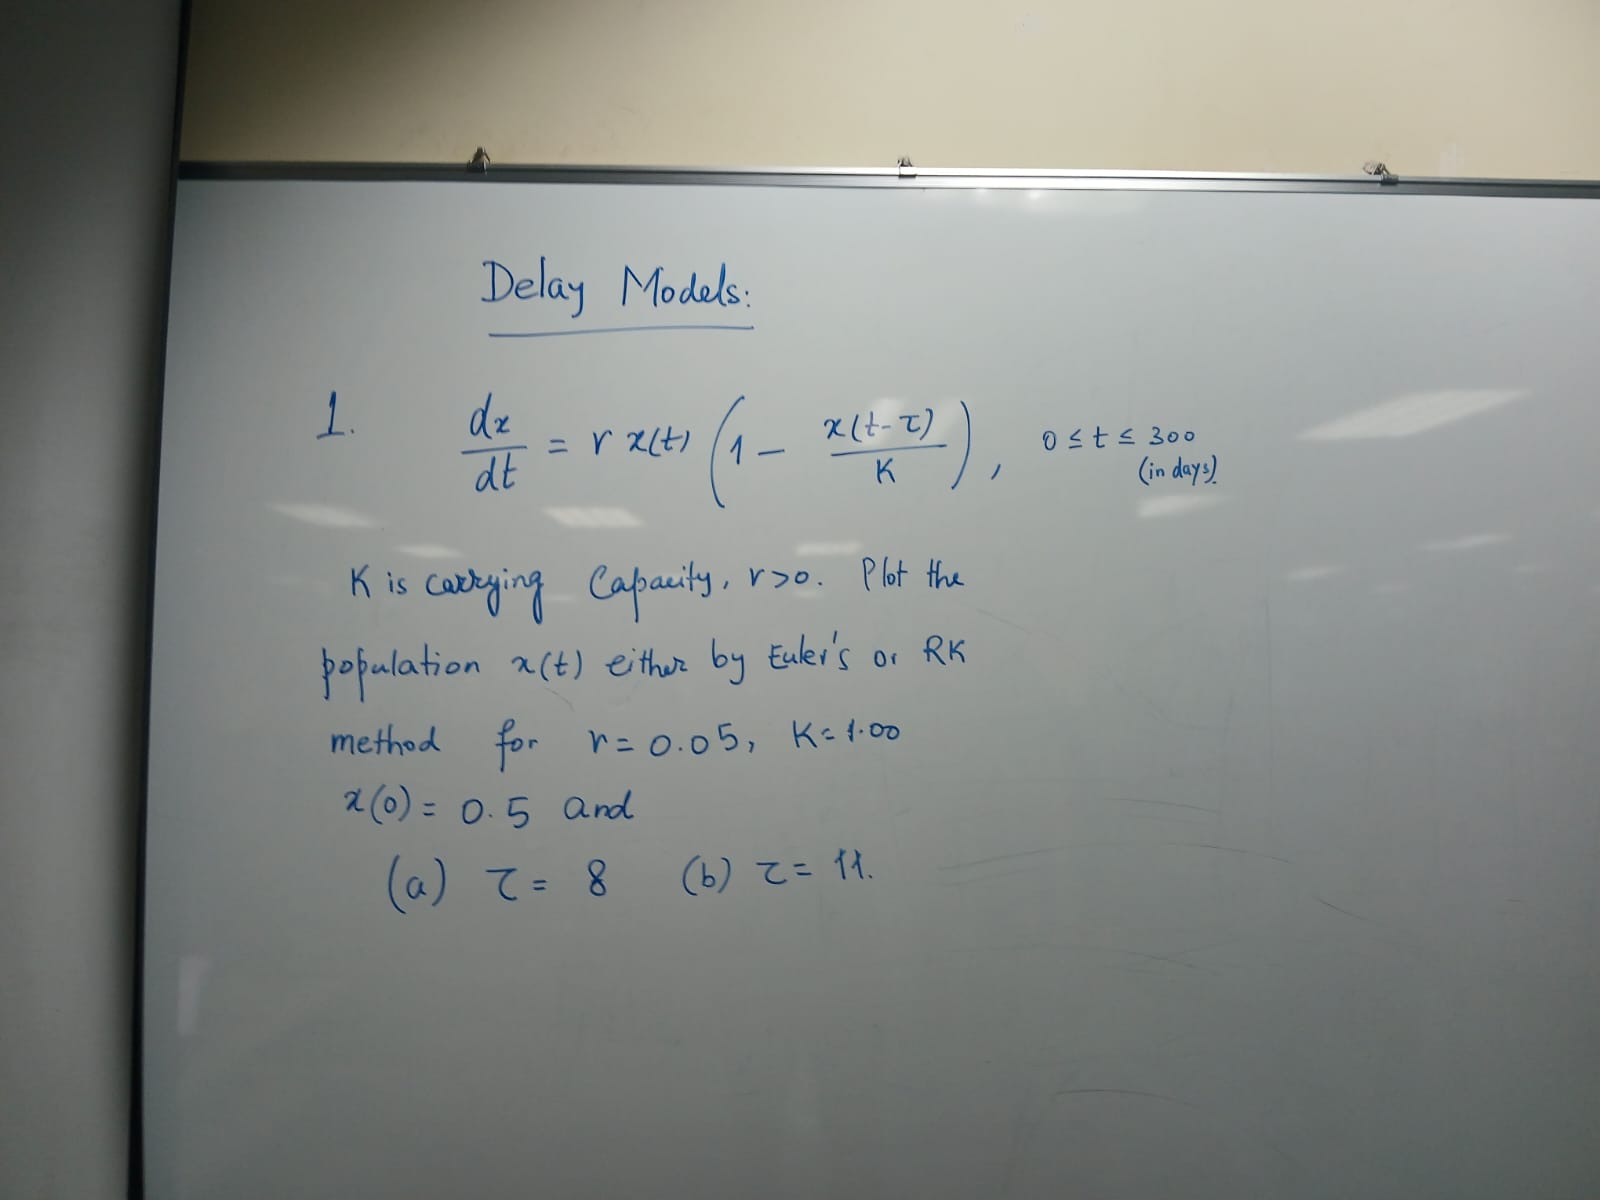 Delay Models:
1. dx/dt = r x(t) (1 - x(t-τ)/K), 0 ≤ t ≤ 300
(in days).
K is carrying Capacity, r>0. Plot the
population x(t) either by Euler's or RK
method for r = 0.05, K = 1.00
x(0) = 0.5 and
(a) τ = 8 (b) τ = 11.